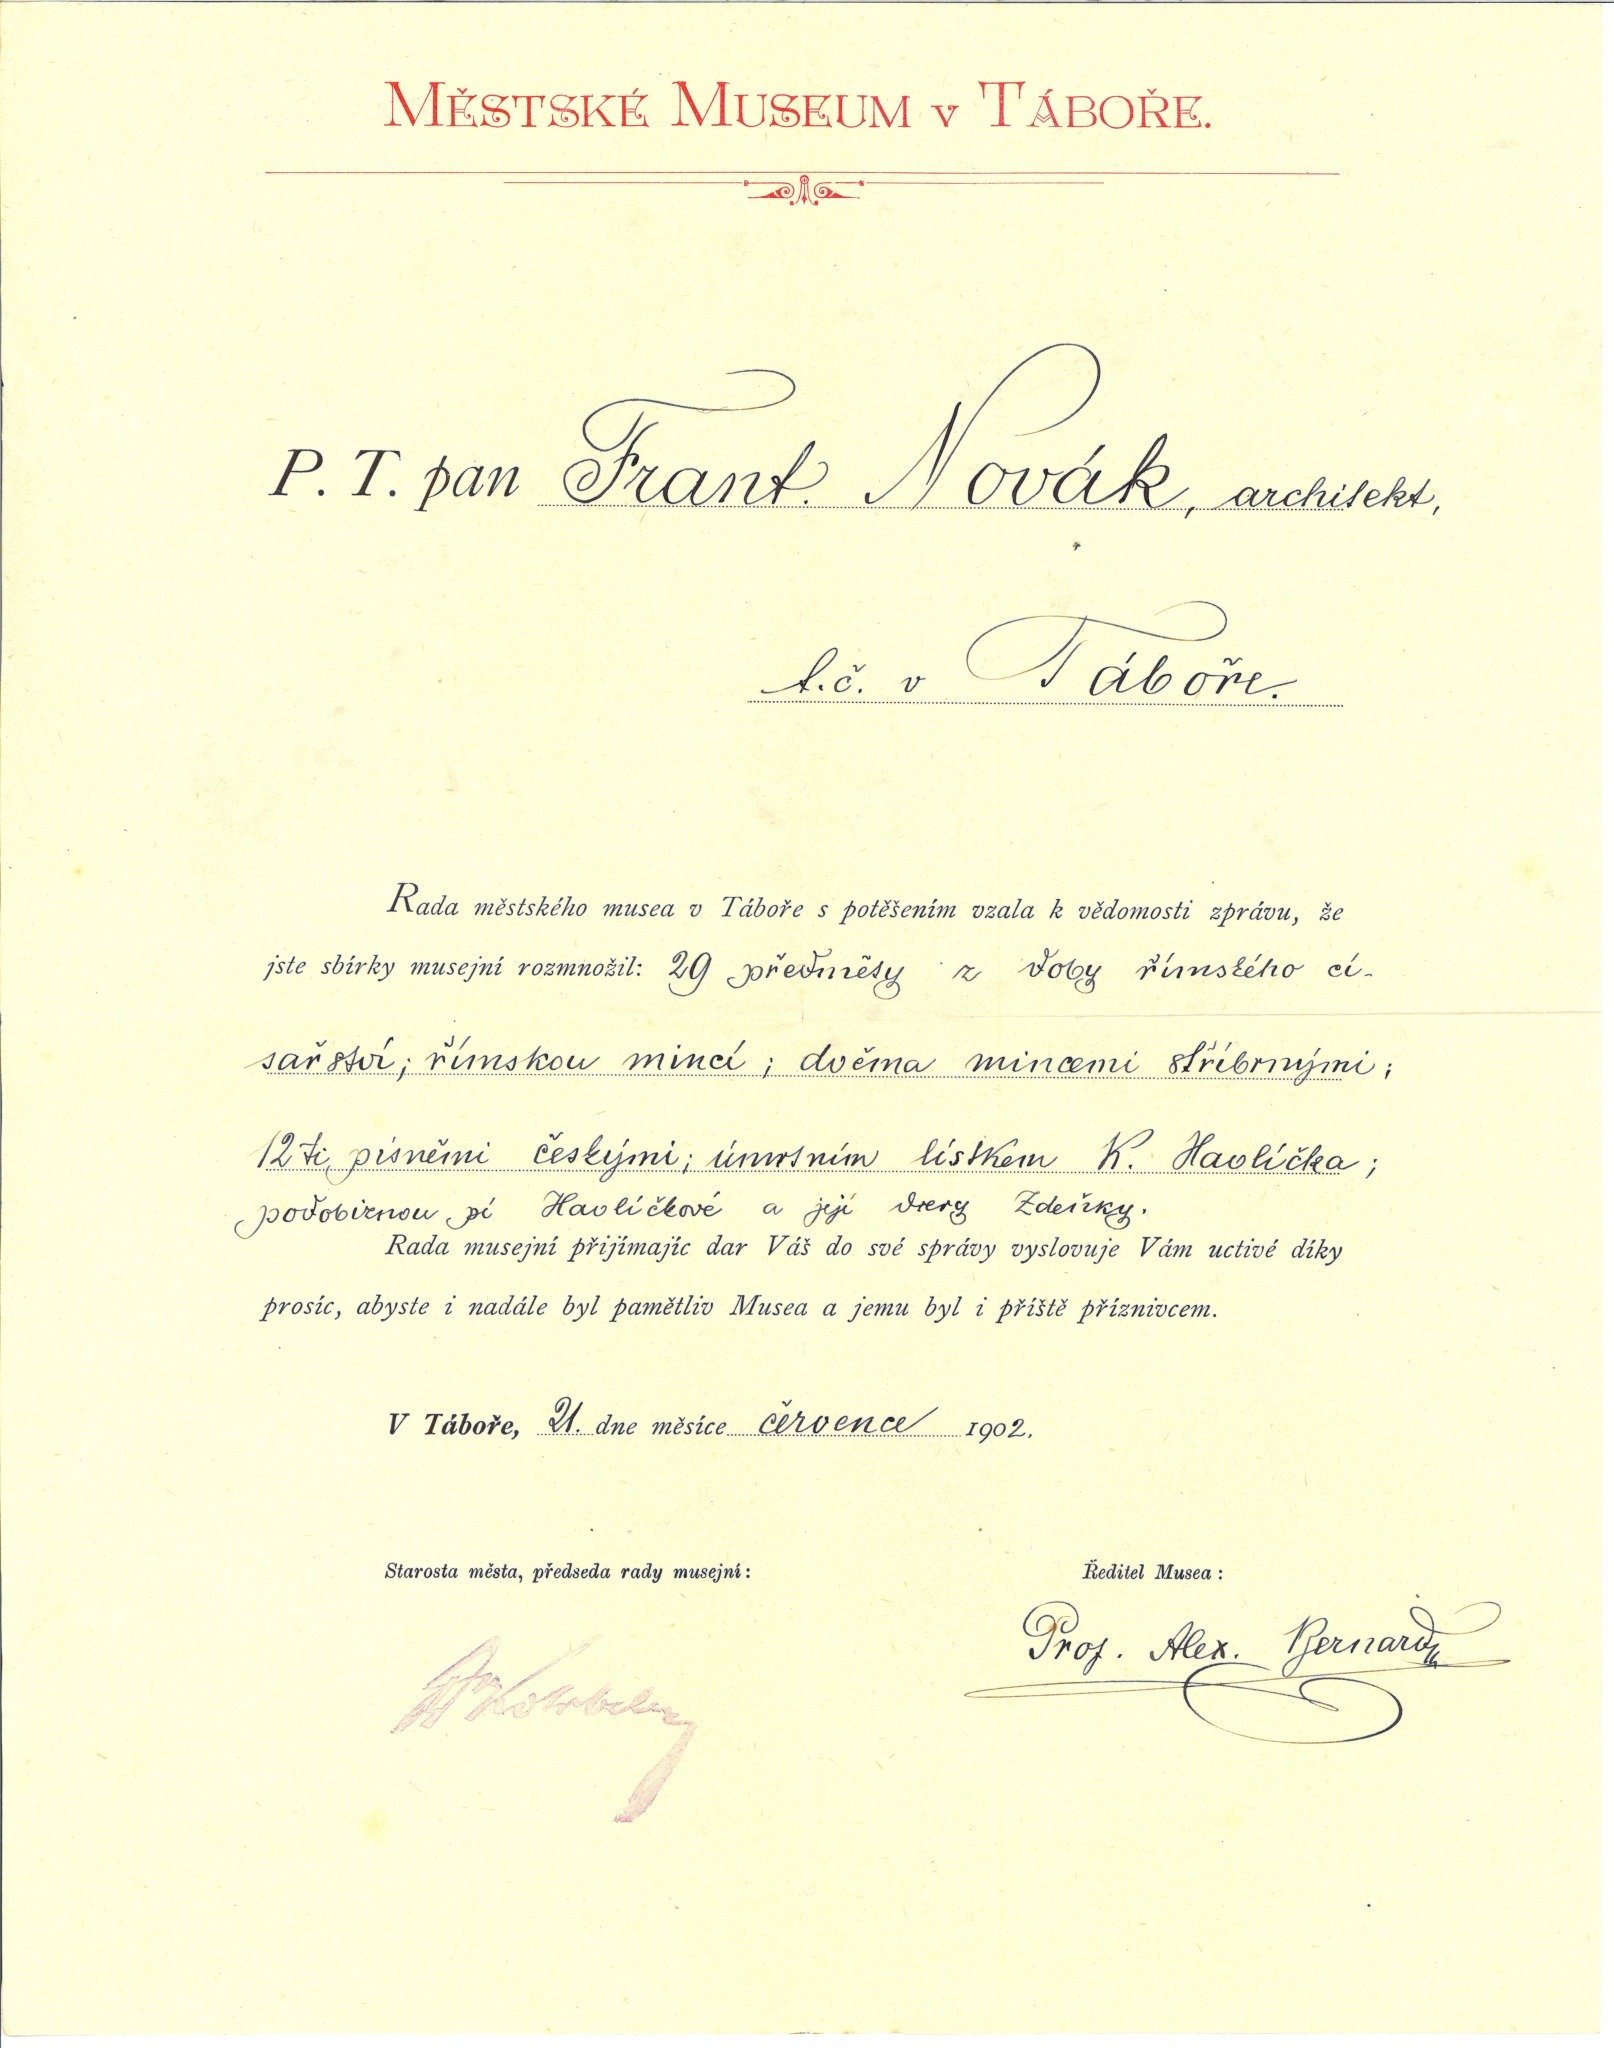 Městské Museum v Táboře.
P. T. pan Frant. Novák, architekt,
t.č. v Táboře.
Rada městského musea v Táboře s potěšením vzala k vědomosti zprávu, že
jste sbírky musejní rozmnožil: 29 předměty z doby římského cí-
sařství; římskou mincí; dvěma mincemi stříbrnými;
12ti písněmi českými; úmrtním lístkem K. Havlíčka;
podobiznou pí Havlíčkové a její dcery Zdeňky.
Rada musejní přijímajíc dar Váš do své správy vyslovuje Vám uctivé díky
prosíc, abyste i nadále byl pamětliv Musea a jemu byl i příště příznivcem.
V Táboře, 21. dne měsíce července 1902.
Starosta města, předseda rady musejní:
Ředitel Musea:
Prof. Alex. Bernard